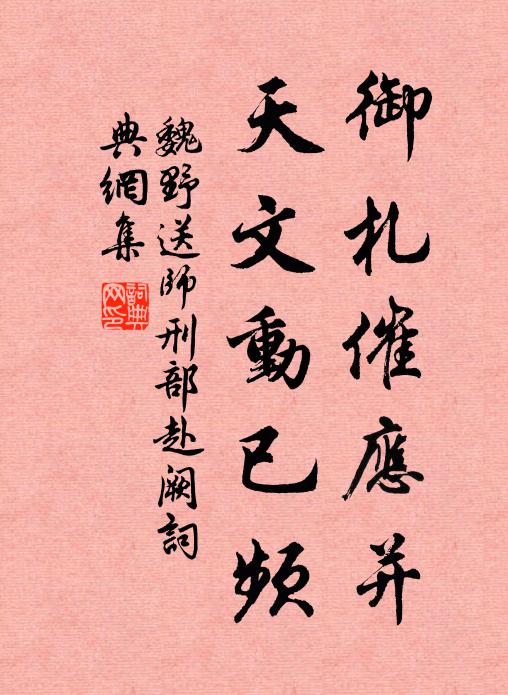 御札催應并
天文動已頻
魏野送師刑部赴闕詞
典網集
詞典網印